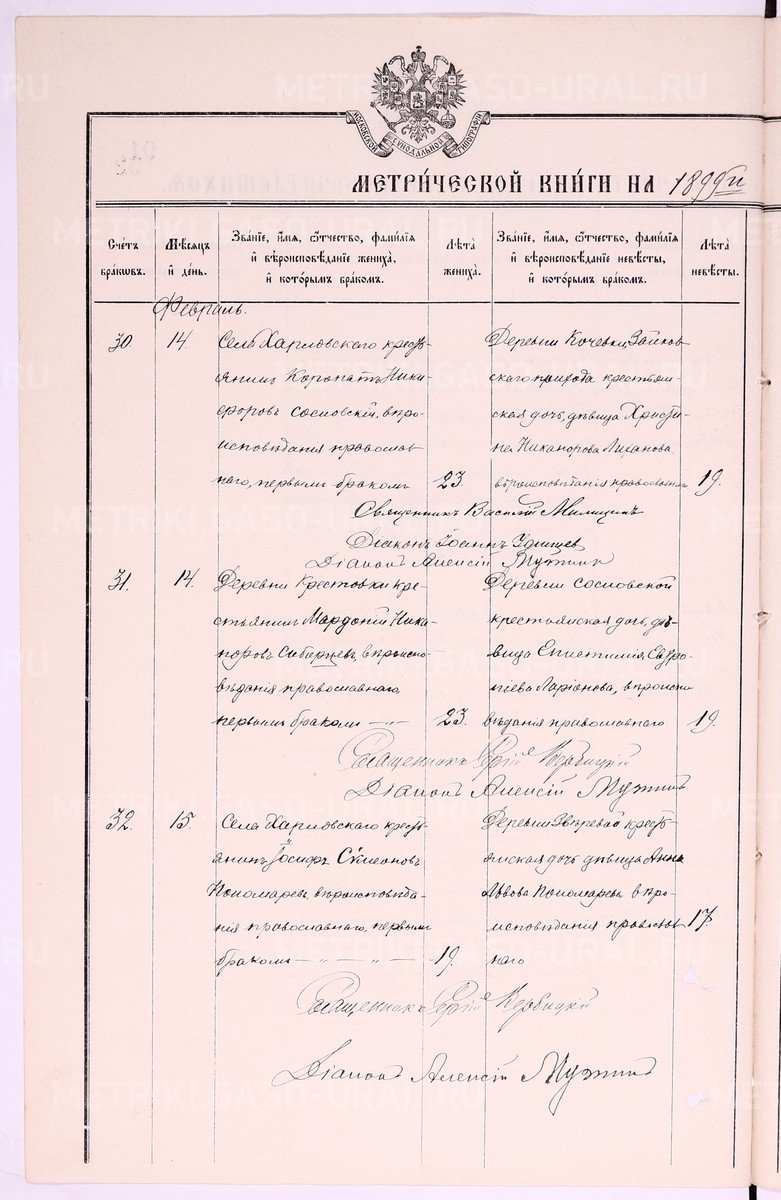 METRIKI.GASO-URAL.RU
МОСКОВСКОЙ СУНОДАЛЬНОЙ ТИПОГРАФІИ
МЕТРИ́ЧЕСКОЙ КНИ́ГИ НА 1899й
Сче́тъ бра́кωвъ.
Мѣ́сяцъ и҆ де́нь.
Зва́нїе, и҆́мѧ, ѻ҆́тчество, фамѝлїѧ и҆ вѣроисповѣ́данїе жениха̀, и҆ кото́рымъ бра́комъ.
Лѣ́та жениха̀.
Зва́нїе, и҆́мѧ, ѻ҆́тчество, фамѝлїѧ и҆ вѣроисповѣ́данїе невѣ́сты, и҆ кото́рымъ бра́комъ.
Лѣ́та невѣ́сты.
Февраль.
30. 14.
Села Харловскаго кресть-
янинъ Ники-
форовъ Сосновскій, вѣро-
исповѣданія православ-
наго, первымъ бракомъ 23.
Деревни Кочевки, Зайков-
скаго прихода крестьян-
ская дочь, дѣвица Христи-
на Никанорова Лиханова,
вѣроисповѣданія православнаго 19.
Священникъ Василій
Діаконъ Іоаннъ Удинцев
Діаконъ Алексій
31. 14.
Деревни Крестовки кре-
стьянинъ Мардоній Ника-
норовъ Сибирцевъ, вѣроиспо-
вѣданія православнаго
первымъ бракомъ —"— 23.
Деревни Сосновской
крестьянская дочь, дѣ-
вица Епистимія
Ларіонова, вѣроиспо-
вѣданія православнаго 19.
Священникъ Сергій Вербицкій
Діаконъ Алексій
32. 15.
Села Харловскаго кресть-
янинъ Іосифъ Сѵмеоновъ
Пономаревъ, вѣроисповѣда-
нія православнаго, первымъ
бракомъ — " — " — " — 19.
Деревни Звѣревой кресть-
янская дочь дѣвица Анна
Львова Пономарева, вѣро-
исповѣданія православ- 17.
наго
Священникъ Сергій Вербицкій
Діаконъ Алексій